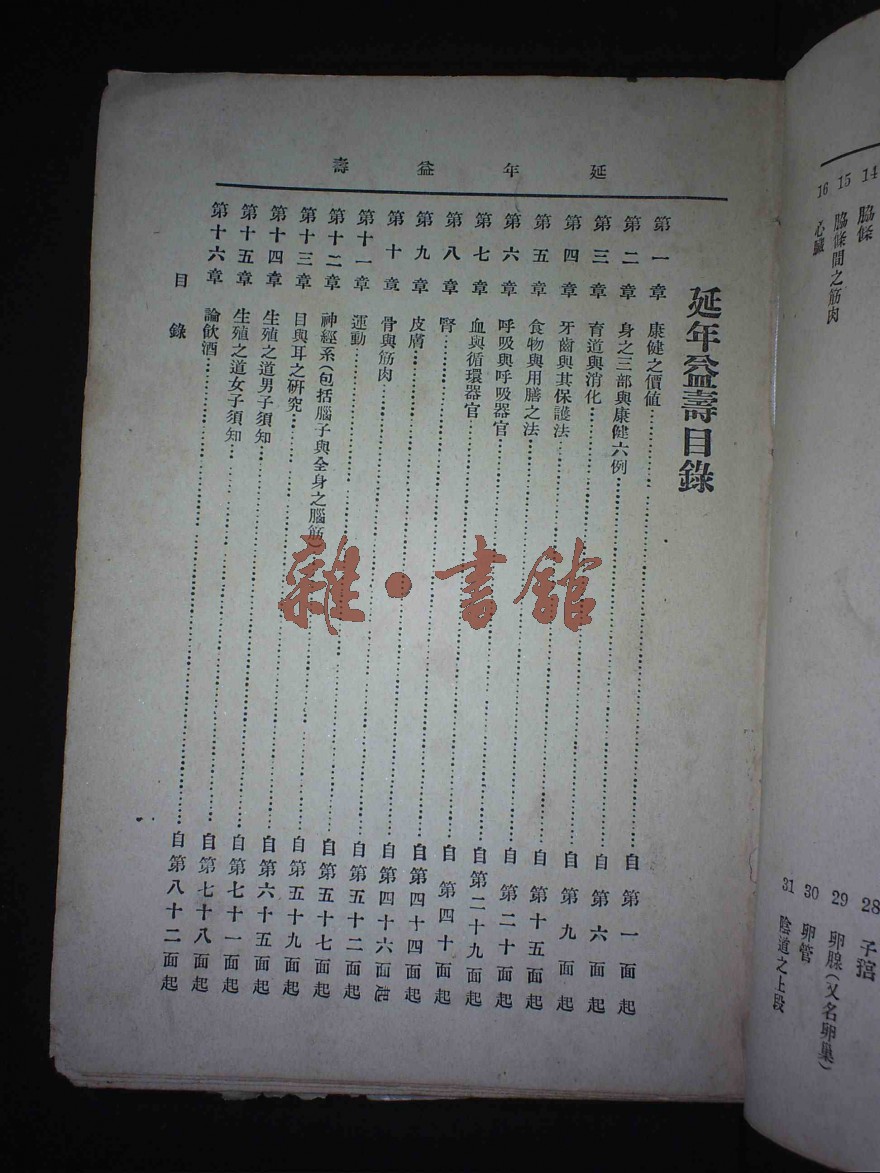 14 脇條
15 脇條間之筋肉
16 心臟
28 子
29 卵腺(又名卵巢)
30 卵管
31 陰道之上段
延年益壽
延年益壽目錄
第一章 康健之價值……自第一面起
第二章 身之三部與康健六例……自第六面起
第三章 育道與消化……自第九面起
第四章 牙齒與其保護法……自第十五面起
第五章 食物與用膳之法……自第二十面起
第六章 呼吸與呼吸器官……自第二十九面起
第七章 血與循環器官……自第四十面起
第八章 腎……自第四十四面起
第九章 皮膚……自第四十六面起
第十章 骨與筋肉……自第五十二面起
第十一章 運動……自第五十七面起
第十二章 神經系(包括腦子與全身之腦筋)……自第五十九面起
第十三章 目與耳之研究……自第六十五面起
第十四章 生殖之道男子須知……自第七十一面起
第十五章 生殖之道女子須知……自第七十八面起
第十六章 論飲酒……自第八十二面起
目錄
雜·書館